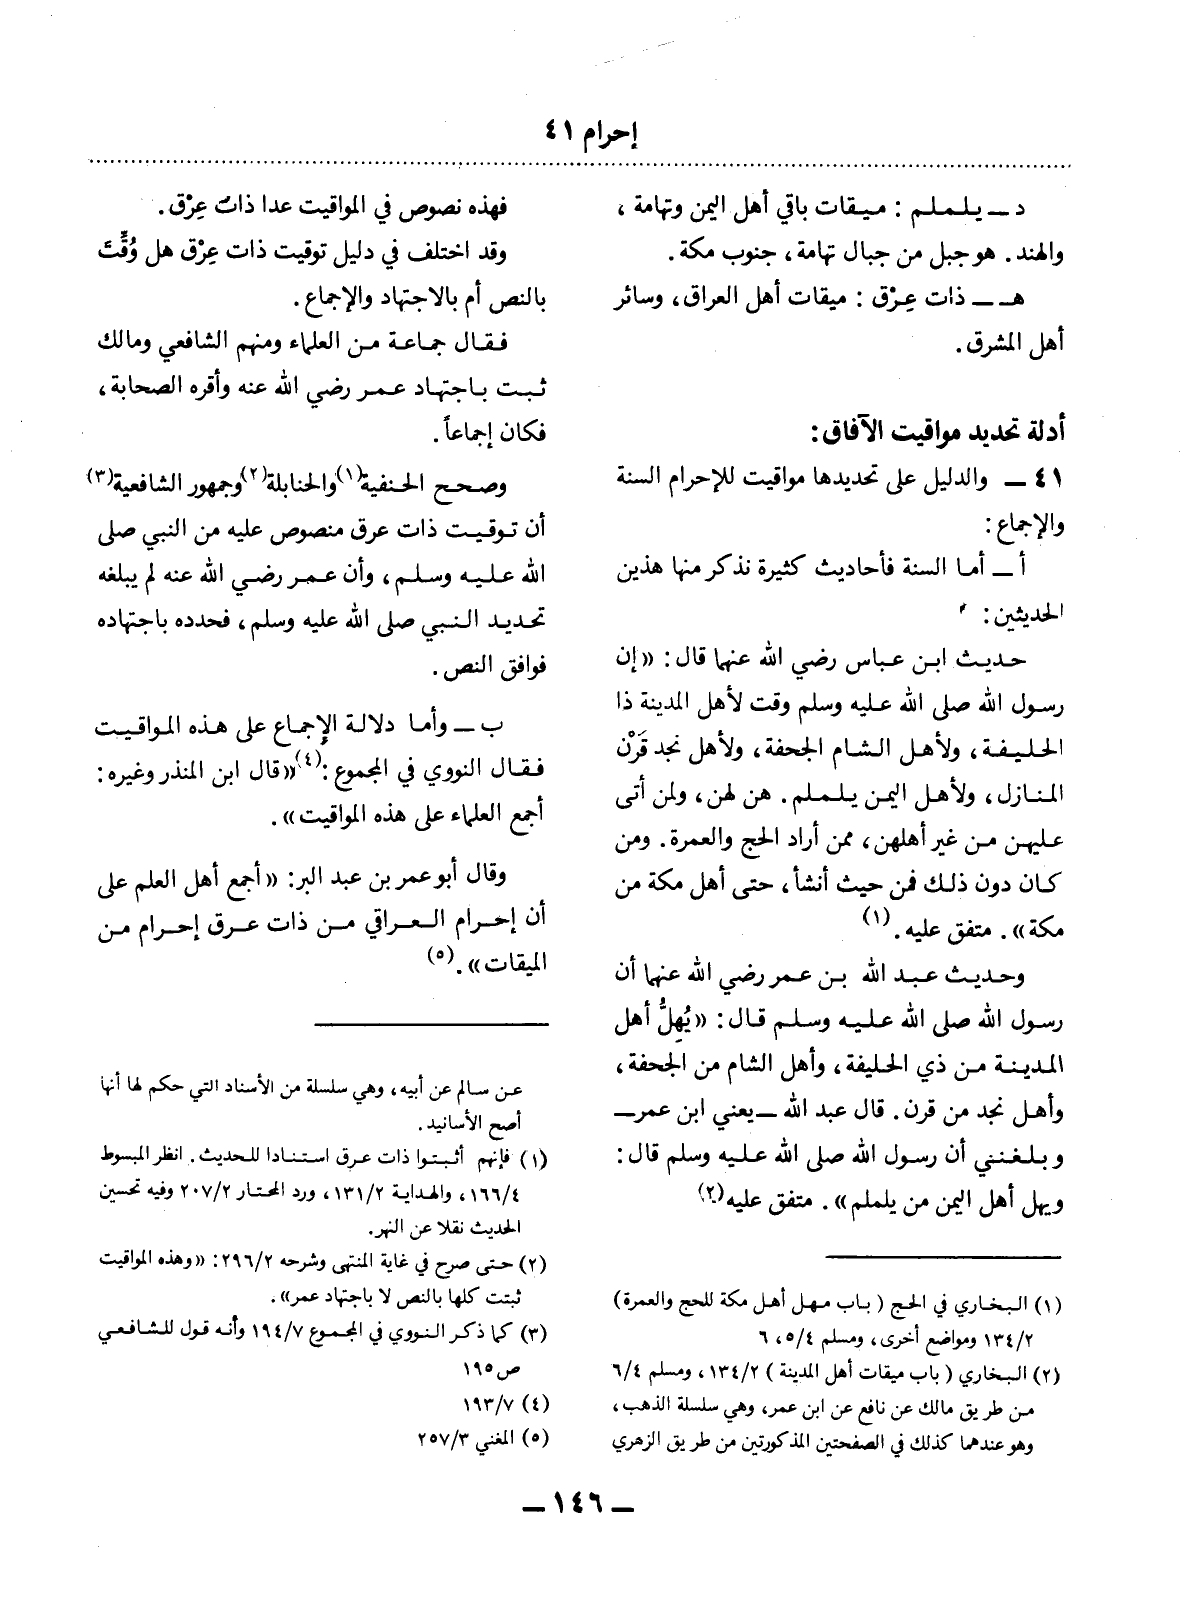 إحرام ٤١
د ــ يلملم : ميقات باقي أهل اليمن وتهامة ،
والهند . هو جبل من جبال تهامة ، جنوب مكة .
هـ ــ ذات عِرْق : ميقات أهل العراق ، وسائر
أهل المشرق .
أدلة تحديد مواقيت الآفاق :
٤١ ــ والدليل على تحديدها مواقيت للإحرام السنة
والإجماع :
أ ــ أما السنة فأحاديث كثيرة نذكر منها هذين
الحديثين :
حديث ابن عباس رضي الله عنهما قال : «إن
رسول الله صلى الله عليه وسلم وقت لأهل المدينة ذا
الحليفة ، ولأهل الشام الجحفة ، ولأهل نجد قَرْن
المنازل ، ولأهل اليمن يلملم . هن لهن ، ولمن أتى
عليهن من غير أهلهن ، ممن أراد الحج والعمرة . ومن
كان دون ذلك فمن حيث أنشأ ، حتى أهل مكة من
مكة» . متفق عليه . (١)
وحديث عبد الله بن عمر رضي الله عنهما أن
رسول الله صلى الله عليه وسلم قال : «يُهِلُّ أهل
المدينة من ذي الحليفة ، وأهل الشام من الجحفة ،
وأهل نجد من قرن . قال عبد الله ــ يعني ابن عمر ــ
وبلغني أن رسول الله صلى الله عليه وسلم قال :
ويهل أهل اليمن من يلملم» . متفق عليه (٢)
(١) البخاري في الحج ( باب مهل أهل مكة للحج والعمرة )
١٣٤/٢ ومواضع أخرى ، ومسلم ٥/٤ ، ٦
(٢) البخاري ( باب ميقات أهل المدينة ) ١٣٤/٢ ، ومسلم ٦/٤
من طريق مالك عن نافع عن ابن عمر، وهي سلسلة الذهب ،
وهو عندهما كذلك في الصفحتين المذكورتين من طريق الزهري
فهذه نصوص في المواقيت عدا ذات عِرْق .
وقد اختلف في دليل توقيت ذات عِرْق هل وُقِّتَ
بالنص أم بالاجتهاد والإجماع .
فقال جماعة من العلماء ومنهم الشافعي ومالك
ثبت باجتهاد عمر رضي الله عنه وأقره الصحابة ،
فكان إجماعاً .
وصحح الحنفية (١) والحنابلة (٢) وجمهور الشافعية (٣)
أن توقيت ذات عرق منصوص عليه من النبي صلى
الله عليه وسلم ، وأن عمر رضي الله عنه لم يبلغه
تحديد النبي صلى الله عليه وسلم ، فحدده باجتهاده
فوافق النص .
ب ــ وأما دلالة الإجماع على هذه المواقيت
فقال النووي في المجموع : (٤) «قال ابن المنذر وغيره :
أجمع العلماء على هذه المواقيت» .
وقال أبو عمر بن عبد البر : «أجمع أهل العلم على
أن إحرام العراقي من ذات عرق إحرام من
الميقات» . (٥)
عن سالم عن أبيه ، وهي سلسلة من الأسناد التي حكم لها أنها
أصح الأسانيد .
(١) فإنهم أثبتوا ذات عرق استنادا للحديث . انظر المبسوط
١٦٦/٤ ، والهداية ١٣١/٢ ، ورد المحتار ٢٠٧/٢ وفيه تحسين
الحديث نقلا عن النهر .
(٢) حتى صرح في غاية المنتهى وشرحه ٢٩٦/٢ : «وهذه المواقيت
ثبتت كلها بالنص لا باجتهاد عمر» .
(٣) كما ذكر النووي في المجموع ١٩٤/٧ وأنه قول للشافعي
ص ١٩٥
(٤) ١٩٣/٧
(٥) المغني ٢٥٧/٣
ــ ١٤٦ ــ